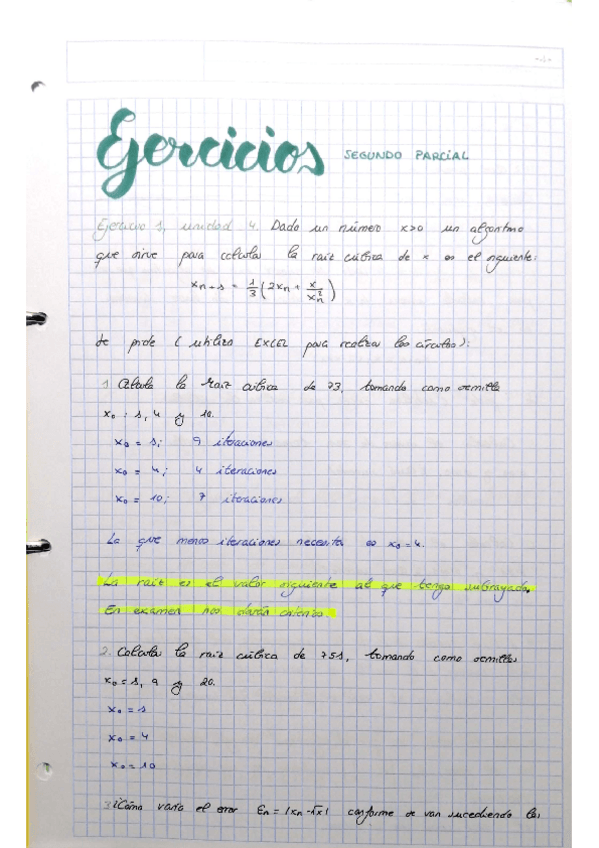 Ejercicios SEGUNDO PARCIAL
Ejercicio 1, unidad 4. Dado un número x>0 un algoritmo
que sirve para calcular la raiz cúbica de x es el siguiente:
xn+1 = 1/3 (2xn + x/xn²)
Se pide (utiliza EXCEL para realizar los cálculos):
1. Calcula la raiz cúbica de 73, tomando como semilla
x₀ : 1, 4 y 10.
x₀ = 1; 9 iteraciones
x₀ = 4; 4 iteraciones
x₀ = 10; 7 iteraciones
La que menos iteraciones necesita es x₀=4.
La raiz es el valor siguiente al que tengo subrayado.
En examen nos darán criterios.
2. Calcula la raiz cúbica de 751, tomando como semillas
x₀=1, 9 y 20.
x₀ = 1
x₀ = 4
x₀ = 10
3. ¿Cómo varía el error En = |xn - √x| conforme se van sucediendo las